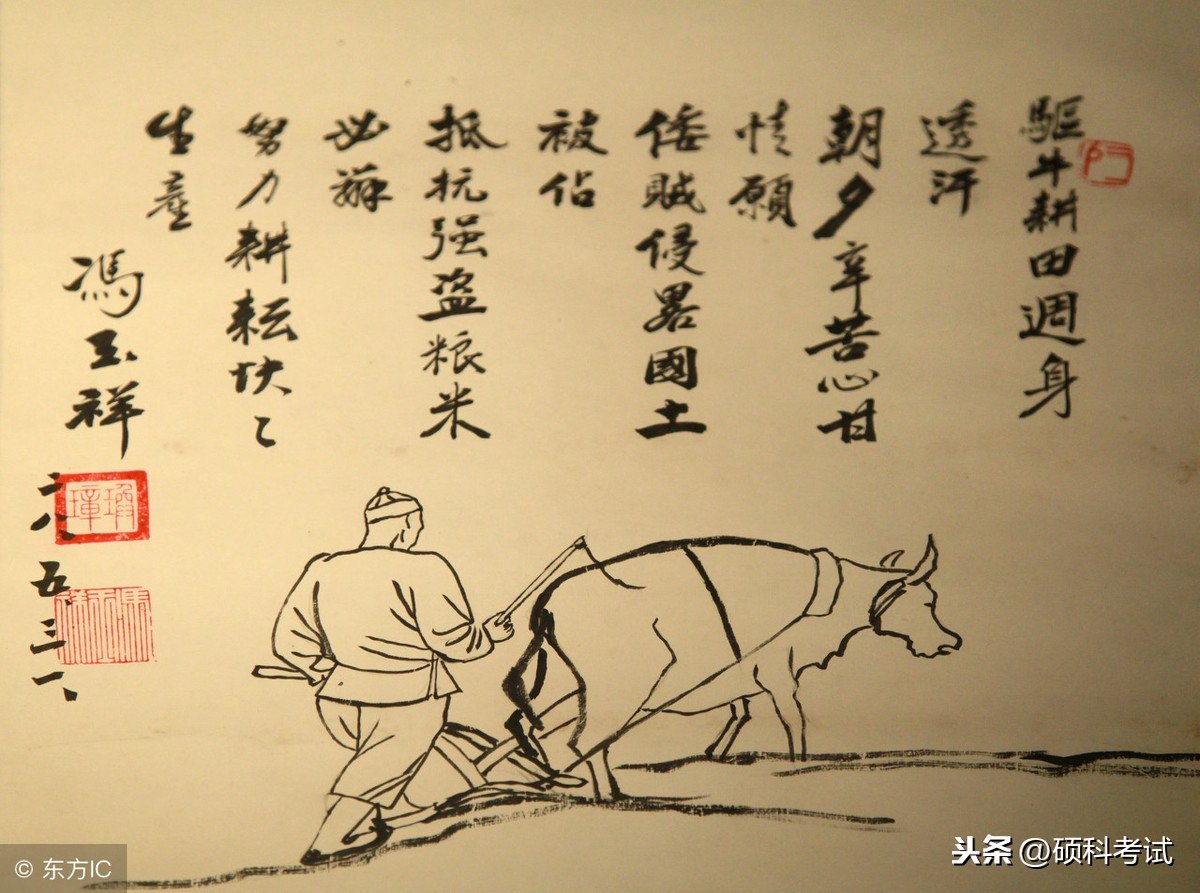 驅牛耕田週身
透汗
朝夕辛苦心甘
情願
倭賊侵畧國土
被佔
抵抗强盗粮米
必辦
努力耕耘快〻
生產
馮玉祥
二八、五、三一、
© 东方IC
头条 @硕科考试